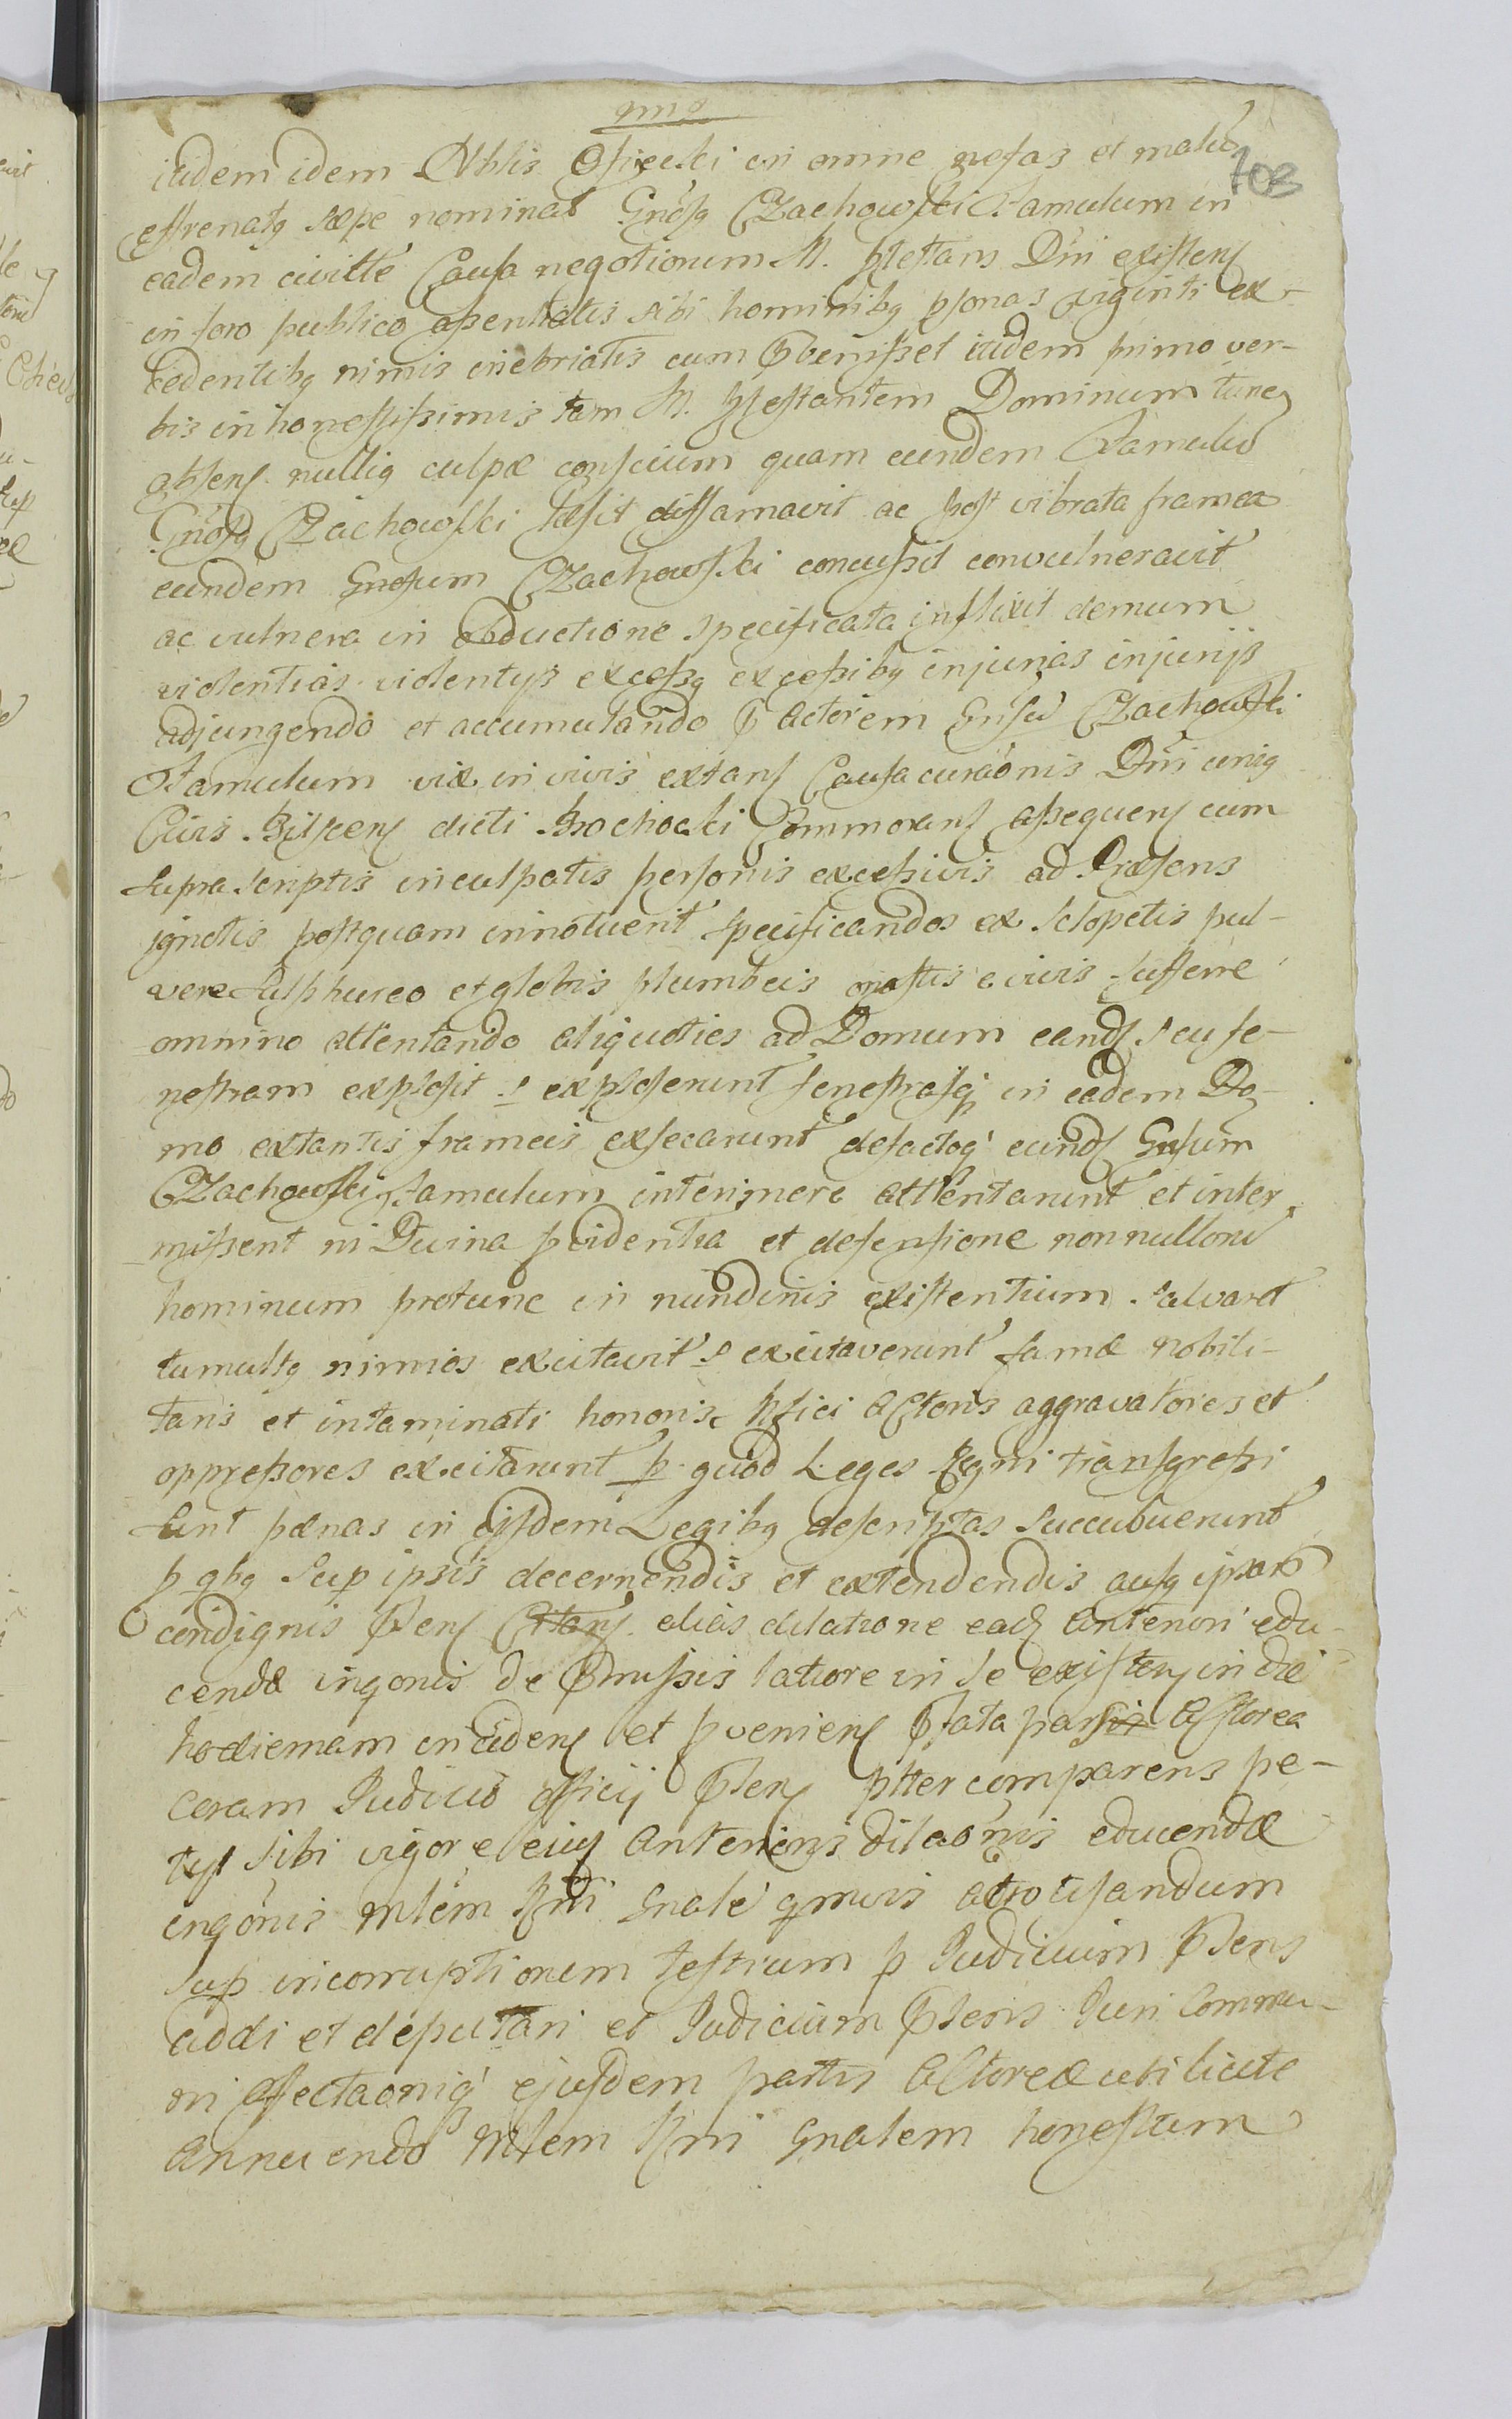 qmo
703
itidem idem Nblis Osiecki in omne nefas et malũ
effrenatq sæpe nominat Gnõsq Czachowski Famulum in
eadem civitte Causa negotiorum M. ptestans Dñi existens
in foro publico assentatis sibi hominibq psonas viginti ex-
cedentibq nimis inebriatis cum pveniszet itidem primo ver-
bis inhonestissimis tam M. ptestantem Dominum tunc
absens nulliq culpæ conscium quam eundem Famulũ
Gnõsq Czachowski læsit diffamavit ac post vibrata framea
eundem Gnosum Czachowski concussit convulneravit
ac vulnera in obductione specificata inflixit demum
violentias violentijs excessq excessibq injurias injurijs
adjungendo et accumulando p Actorem Gnsũ Czachowski
Famulum vix in vivis extans Causa curaõnis Dñi uniq
Civis Bilscens dicti Brochocki Commorans assequens cum
supra scriptis inculpatis personis excessivis ad Præsens
ignotis postquam innotuerit specificandos ex sclopetis pul-
vere sulphureo et globis plumbeis onustis e vivis sufferre
omnino attentando aliquoties ad Domum eand seu fe-
nestram explosit s exploserunt fenestrasq in eadem Do-
mo extantis frameis exsecarunt defactoq eund Gnsum
Czachowski Famulum interimere attentarunt et inter
missent ni Divina pvidentia et defensione nonnullorũ
hominum protunc in nundinis existentium salvaret
tumultq nimios excitavit s excitaverunt famæ nobili-
taris et intaminati honoris ptici Actoris aggravatores et
oppressores excitarunt p quod Leges Regni transgressi
sunt pænas in ejsdem Legibq descriptas succubuerunt
p qbq sup ipsis decernendis et extendendis ausq ipsorũ
condignis Pens Citans alias dilatione ead anteriori edu-
cendæ inqonis de pmissis latiore in se existens in diẽ
hodiernam incidens et pveniens pfata pars Actorea
coram Judicio officij psens ptter comparens pe-
tyt sibi vigore ejus anterioris dilaõnis educendæ
inqõnis Mlem Rni Gnale qmvis atrotisandum
sup incorruptionem testium p Judicium psens
addi et deputari et Judicium psens Juri Commu-
ni affectaoniq ejusdem partis Actoreæ uti licite
Annuendo Mlem Rni Gnalem honestum